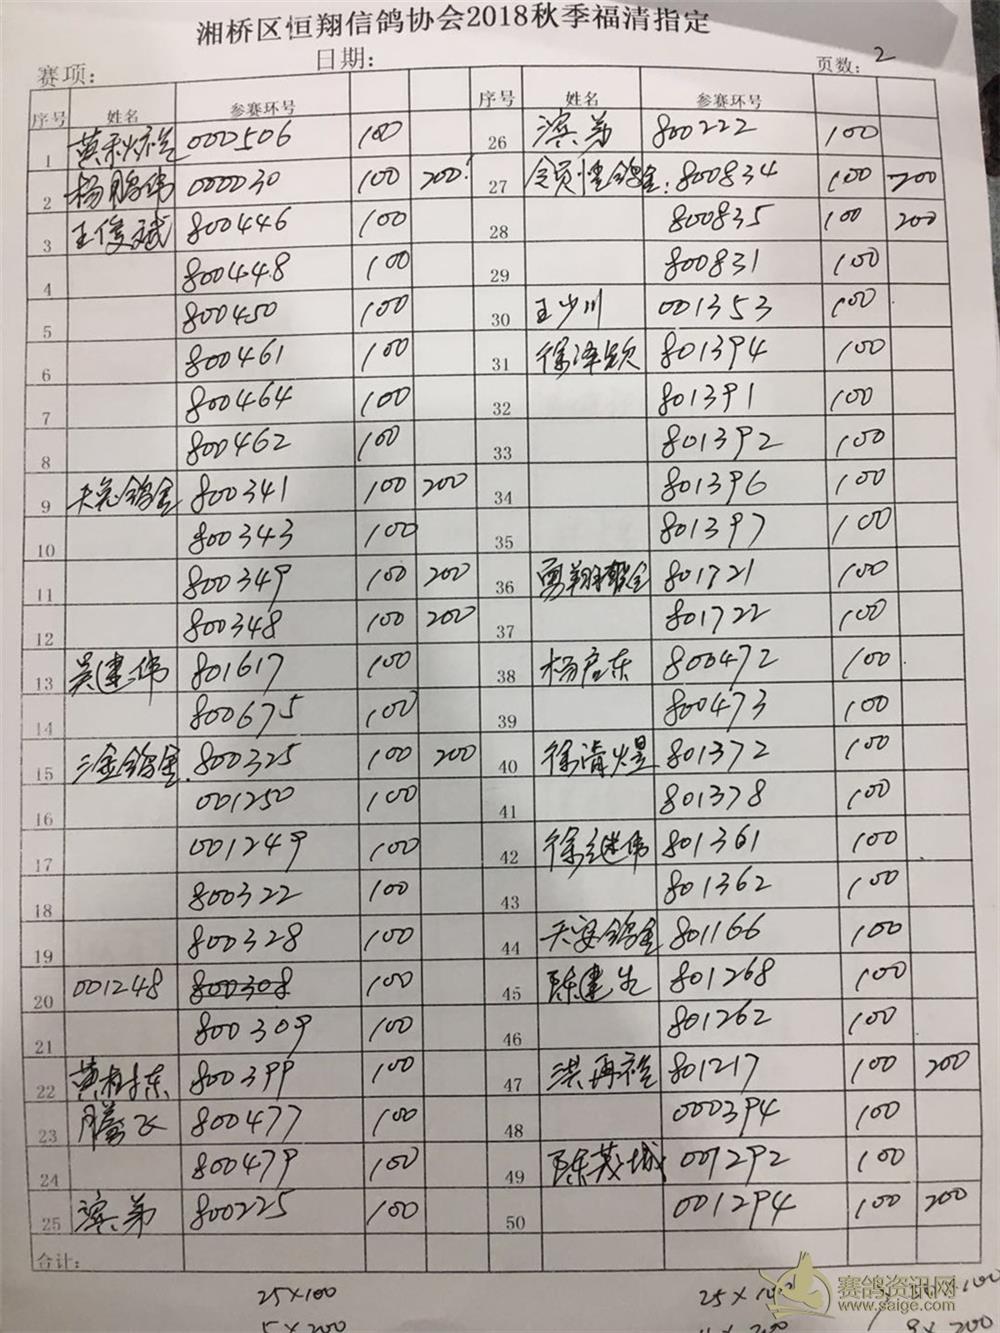 湘桥区恒翔信鸽协会2018秋季福清指定
赛项： 日期： 页数：2
序号 姓名 参赛环号 序号 姓名 参赛环号
1 黄秋炳 000506 100 26 滨弟 800222 100
2 杨鹏伟 000030 100 200 27 800834 100 200
3 王俊斌 800446 100 28 800835 100 200
4 800448 100 29 800831 100
5 800450 100 30 王少川 001353 100
6 800461 100 31 徐泽 801394 100
7 800464 100 32 801391 100
8 800462 100 33 801392 100
9 天 鸽舍 800341 100 200 34 801396 100
10 800343 100 35 801397 100
11 800349 100 200 36 勇翔鸽舍 801721 100
12 800348 100 200 37 801722 100
13 吴建伟 801617 100 38 杨启东 800472 100
14 800675 100 39 800473 100
15 三金鸽舍 800325 100 200 40 徐清煜 801372 100
16 001250 100 41 801378 100
17 001249 100 42 徐继伟 801361 100
18 800322 100 43 801362 100
19 800328 100 44 天安鸽舍 801166 100
20 001248 800308 100 45 陈建 801268 100
21 800309 100 46 801262 100
22 黄树东 800399 100 47 洪再 801217 100 200
23 腾飞 800477 100 48 000394 100
24 800479 100 49 陈茂城 001292 100
25 滨弟 800225 100 50 001294 100 200
合计：
25×100 25×100
5×200 4×200 9×200
赛鸽资讯网
www.saige.com